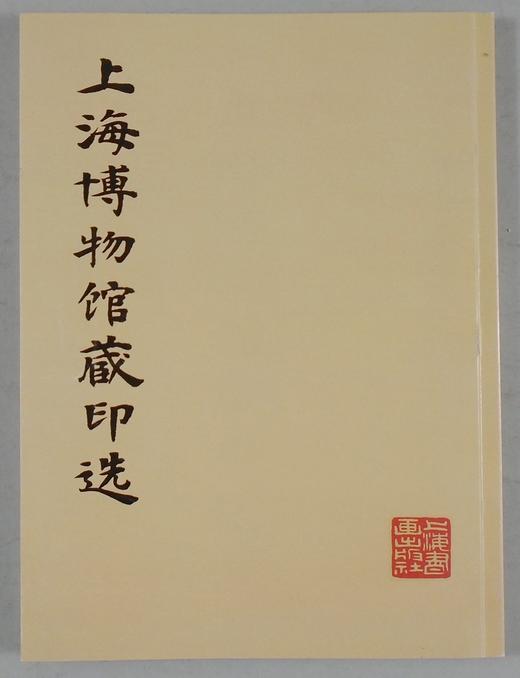 上海博物馆藏印选
上海書
画出版社